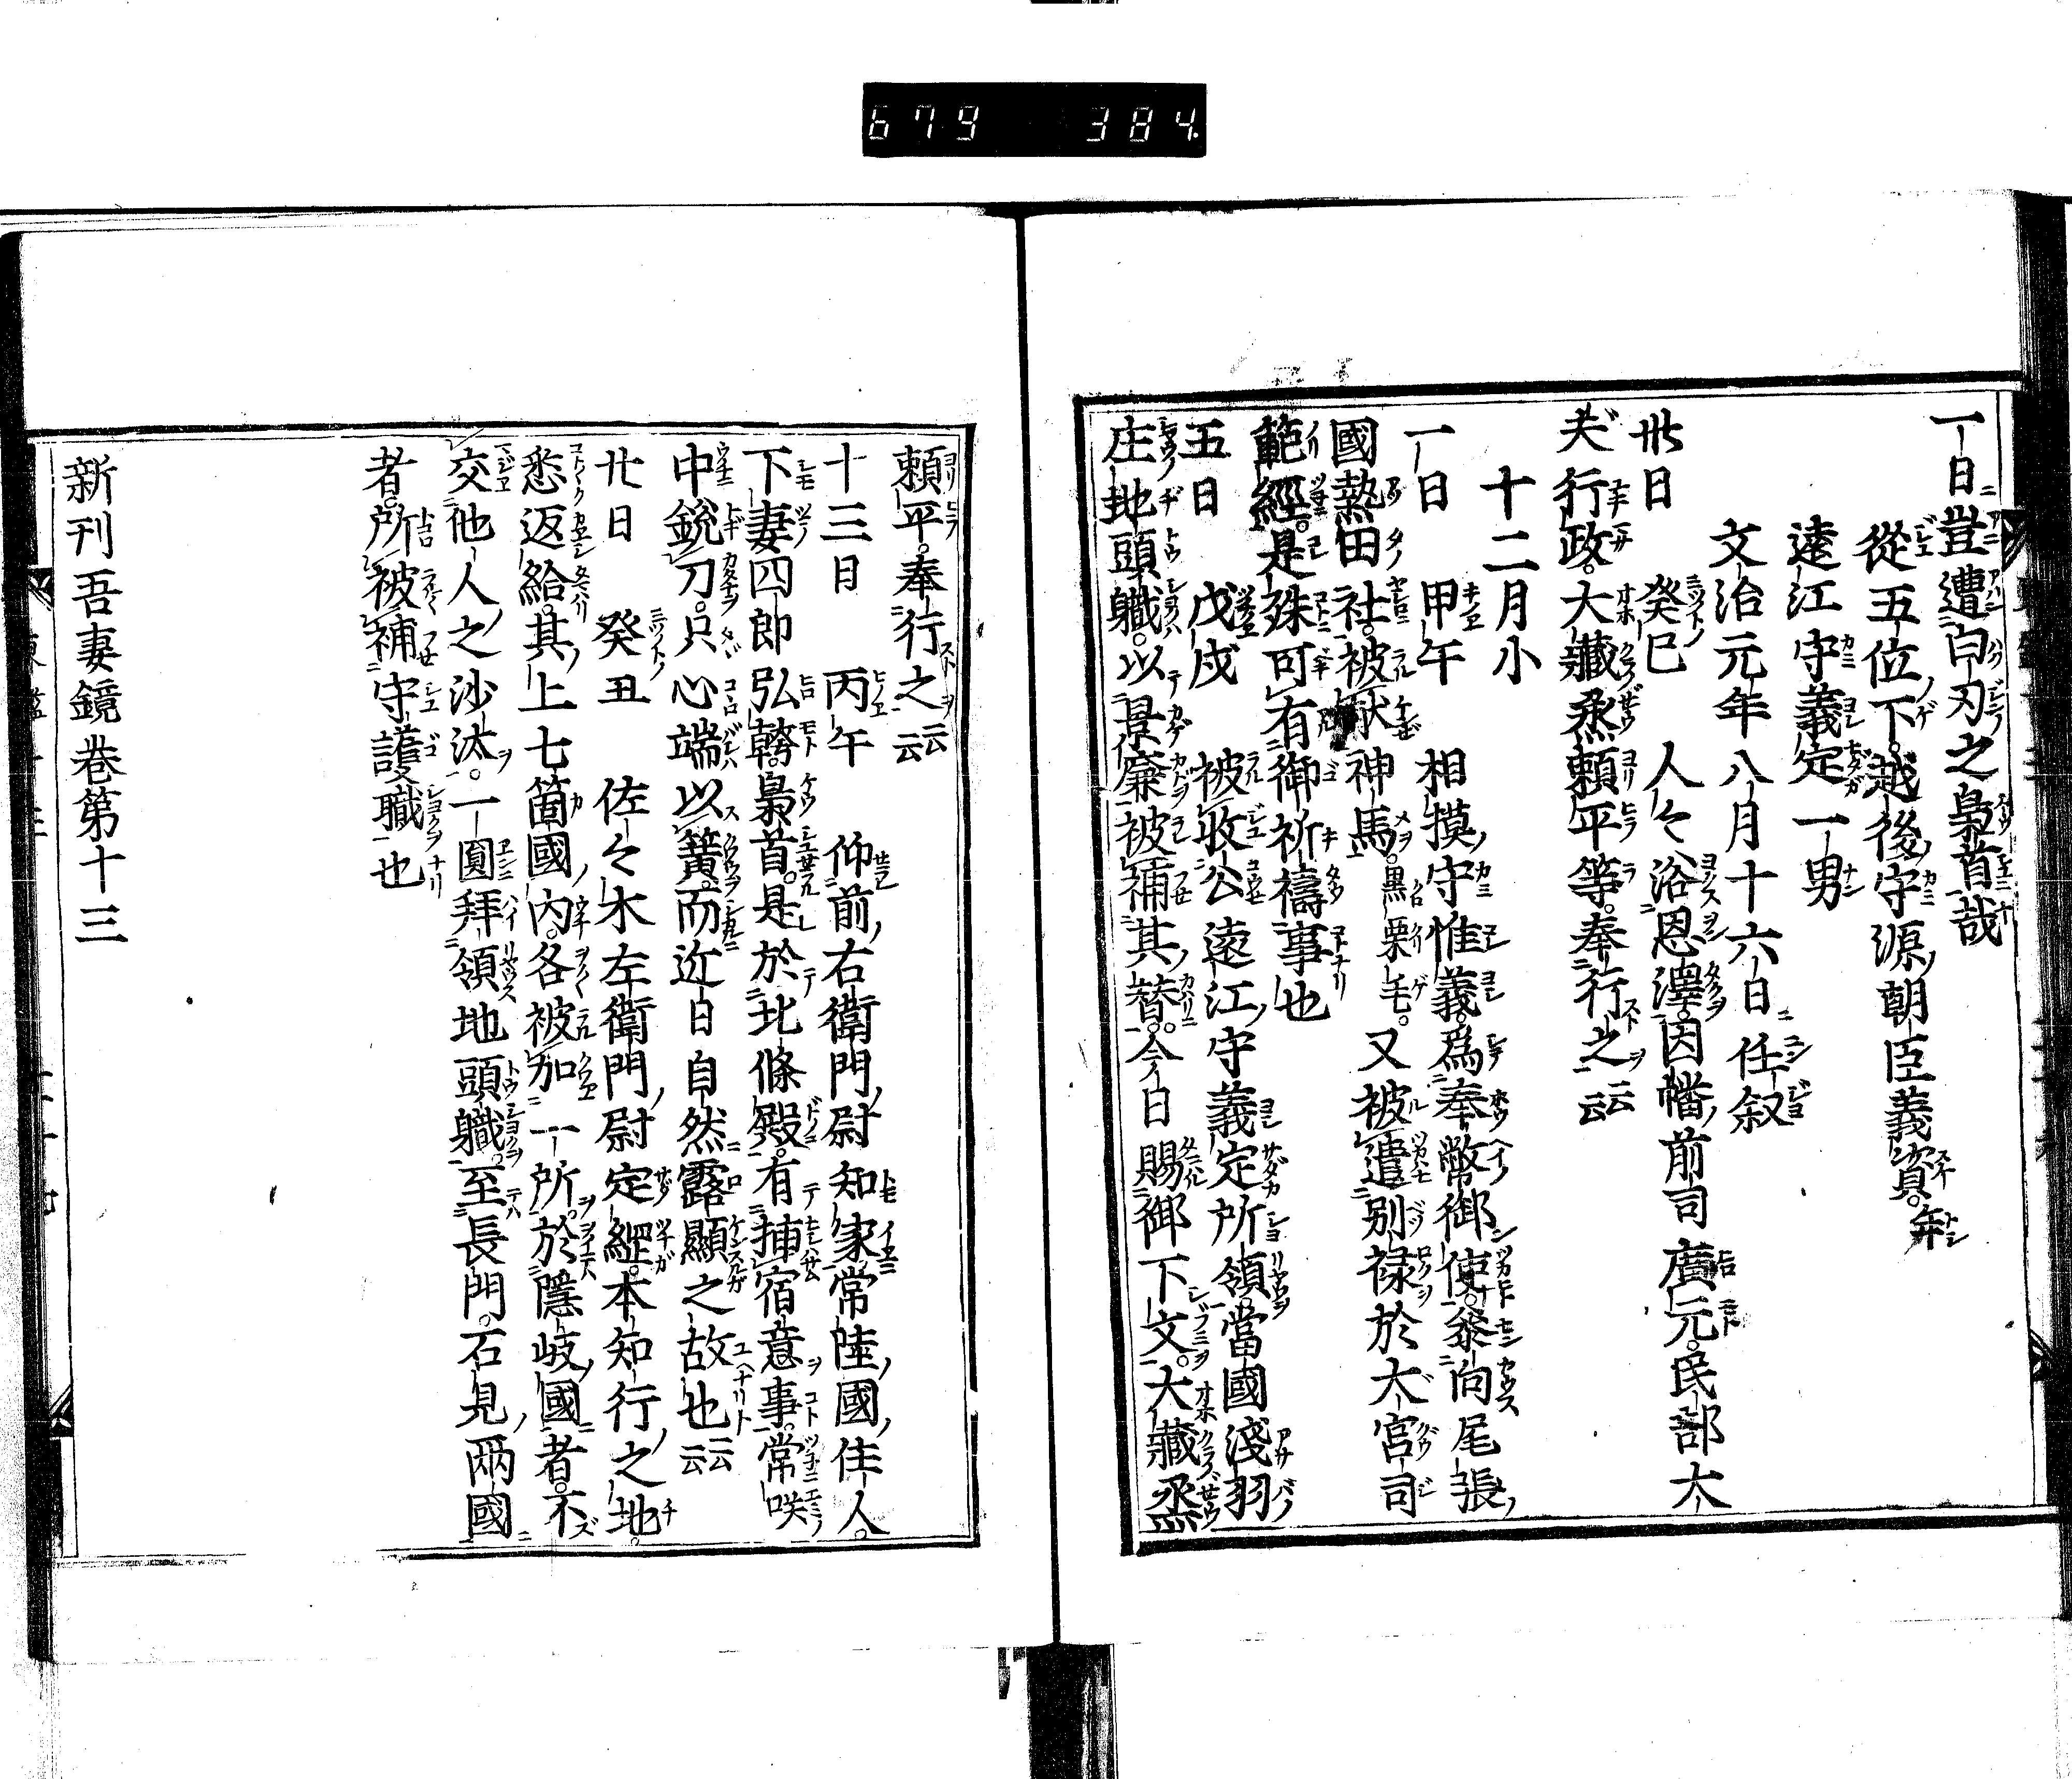 679 384
一日豈遭白刃之梟首哉
從五位下越後守源朝臣義資。年
遠江守義定一男
文治元年八月十六日任叙
卅日 癸巳 人々浴恩澤。因幡前司廣元。民部大
夫行政。大藏丞頼平等。奉行之云云
十二月小
一日 甲午 相摸守惟義。爲奉幣御使。參向尾張
國熱田社。被献神馬。黒栗毛。又被遣別禄於大宮司
範經。是殊可有御祈禱事也
五日 戊戌 被收公遠江守義定所領。當國淺羽
庄地頭職。以景廉被補其替。今日賜御下文。大藏丞
頼平。奉行之云云
十三日 丙午 仰前右衛門尉知家常陸國住人。
下妻四郎弘幹。梟首。是於北條殿。有挿宿意事。常咲
中銳刀。只心端以簧。而近日自然露顯之故也云云
廿日 癸丑 佐々木左衛門尉定綱。本知行之地。
悉返給。其上七箇國内。各被加一所。於隱岐國者。不
交他人之沙汰。一圓拜領地頭職。至長門。石見兩國
者。所被補守護職也
新刊吾妻鏡巻第十三